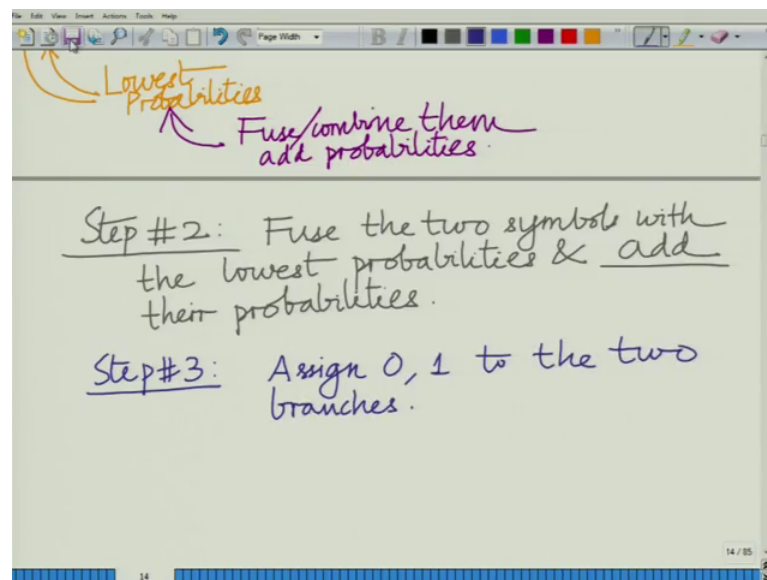 File Edit View Insert Actions Tools Help
Page Width B I
Lowest
Probabilities
Fuse/combine them
add probabilities.
Step #2: Fuse the two symbols with
the lowest probabilities & add
their probabilities.
Step #3: Assign 0, 1 to the two
branches.
14 / 85
14